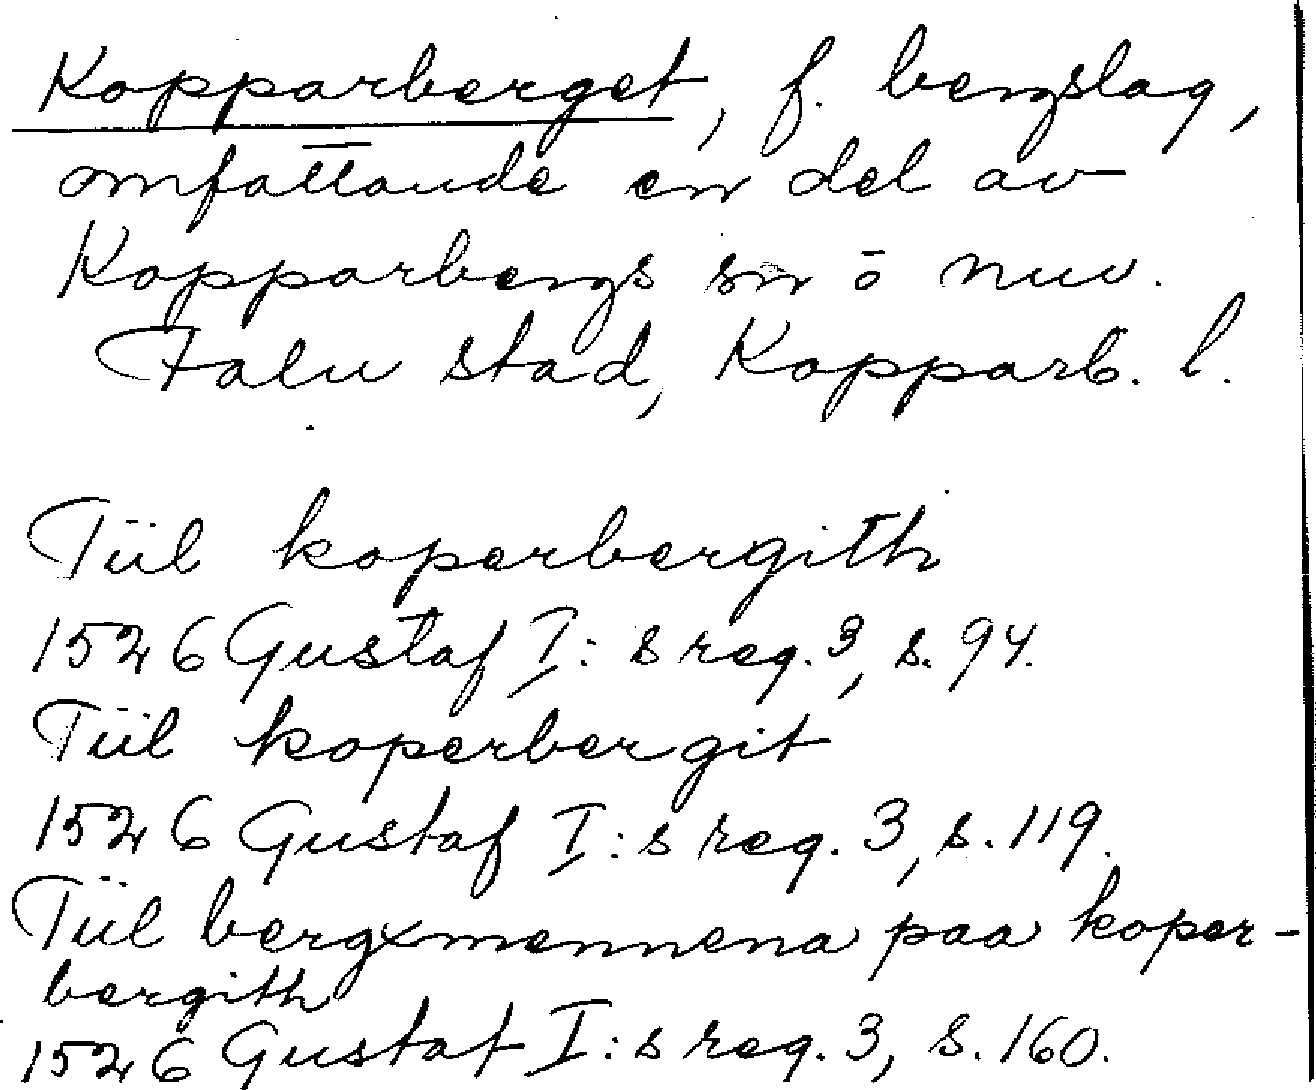 Kopparberget, f. bergslag,
omfattande en del av
Kopparbergs sn o nuv.
Falu stad, Kopparb. l.
Tiil koperbergith
1526 Gustaf I:s reg. 3, s. 94.
Tiil koperbergit
1526 Gustaf I:s reg. 3, s. 119.
Tiil bergxmennena paa koper-
bergith
1526 Gustaf I:s reg. 3, s. 160.